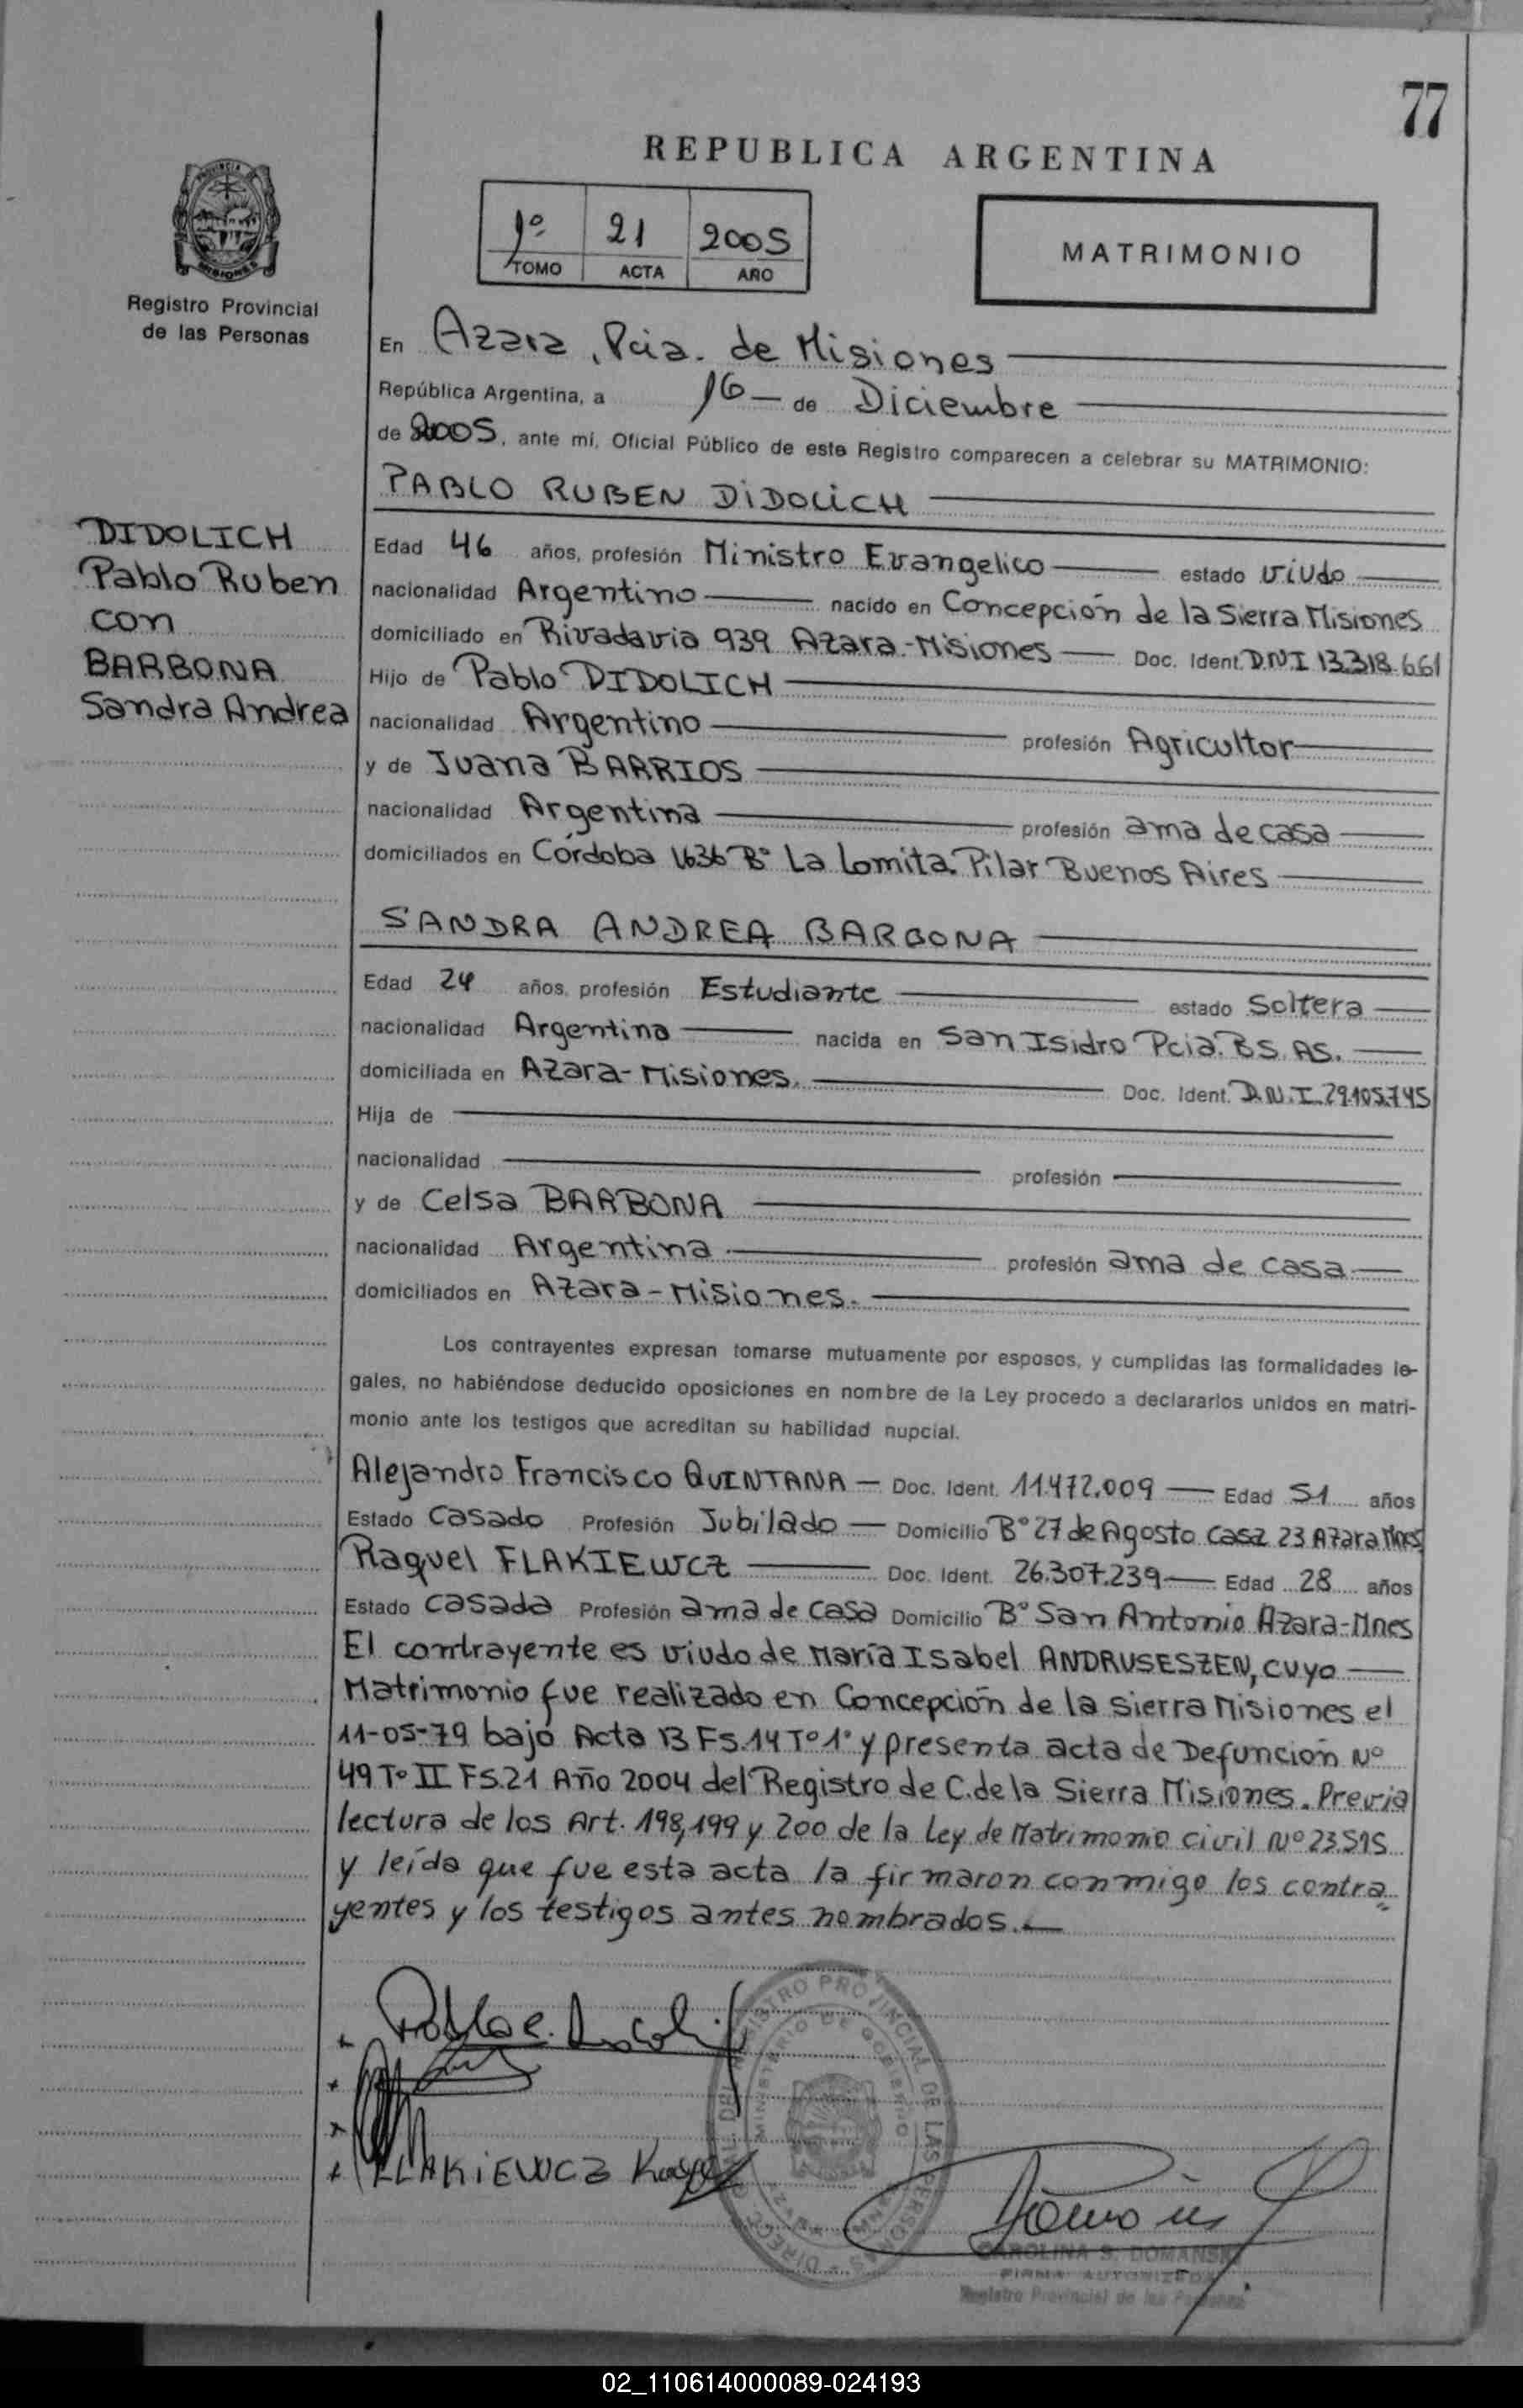 77
REPUBLICA ARGENTINA
1º 21 2005
TOMO ACTA AÑO
MATRIMONIO
Registro Provincial
de las Personas
En Azara, Pcia. de Misiones
República Argentina, a 16 de Diciembre
de 2005, ante mí, Oficial Público de este Registro comparecen a celebrar su MATRIMONIO:
PABLO RUBEN DIDOLICH
DIDOLICH
Pablo Ruben
con
BARBONA
Sandra Andrea
Edad 46 años, profesión Ministro Evangelico estado viudo
nacionalidad Argentino nacido en Concepción de la Sierra Misiones
domiciliado en Rivadavia 939 Azara-Misiones Doc. Ident. D.N.I 13.318.661
Hijo de Pablo DIDOLICH
nacionalidad Argentino profesión Agricultor
y de Juana BARRIOS
nacionalidad Argentina profesión ama de casa
domiciliados en Córdoba 1636 Bº La Lomita. Pilar Buenos Aires
SANDRA ANDREA BARBONA
Edad 24 años, profesión Estudiante estado Soltera
nacionalidad Argentina nacida en San Isidro Pcia. BS. AS.
domiciliada en Azara-Misiones. Doc. Ident. D.N.I. 29.105.745
Hija de
nacionalidad profesión
y de Celsa BARBONA
nacionalidad Argentina profesión ama de casa
domiciliados en Azara-Misiones.
Los contrayentes expresan tomarse mutuamente por esposos, y cumplidas las formalidades le-
gales, no habiéndose deducido oposiciones en nombre de la Ley procedo a declararlos unidos en matri-
monio ante los testigos que acreditan su habilidad nupcial.
Alejandro Francisco QUINTANA — Doc. Ident. 11.472.009 — Edad 51 años
Estado Casado Profesión Jubilado — Domicilio Bº 27 de Agosto Casa 23 Azara Mnes
Raquel FLAKIEWCZ Doc. Ident. 26.307.239 — Edad 28 años
Estado casada Profesión ama de casa Domicilio Bº San Antonio Azara-Mnes
El contrayente es viudo de María Isabel ANDRUSESZEN, cuyo
Matrimonio fue realizado en Concepción de la Sierra Misiones el
11-05-79 bajo Acta 13 FS.14 Tº1º y presenta acta de Defunción Nº
49 Tº II FS.21 Año 2004 del Registro de C. de la Sierra Misiones. Previa
lectura de los Art. 198,199 y 200 de la Ley de Matrimonio civil Nº 23.515
y leída que fue esta acta la firmaron conmigo los contra
yentes y los testigos antes nombrados.
FLAKIEWCZ
CAROLINA S. DOMANSKI
FIRMA AUTORIZADA
Registro Provincial de las Personas
02_110614000089-024193